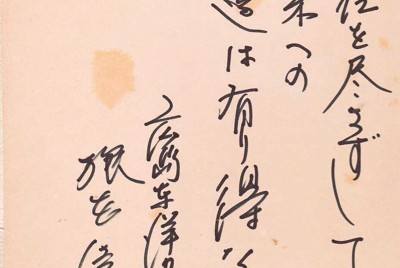 任を尽さずして
来への
道は有り得な
広島東洋